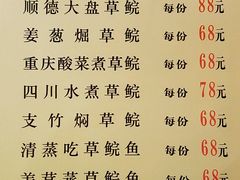 顺德大盘草鲩 每份 88元
姜葱焗草鲩 每份 68元
重庆酸菜煮草鲩 每份 68元
四川水煮草鲩 每份 78元
支竹焖草鲩 每份 68元
清蒸吃草鲩鱼 每份 68元
草鲩鱼 每份 68元